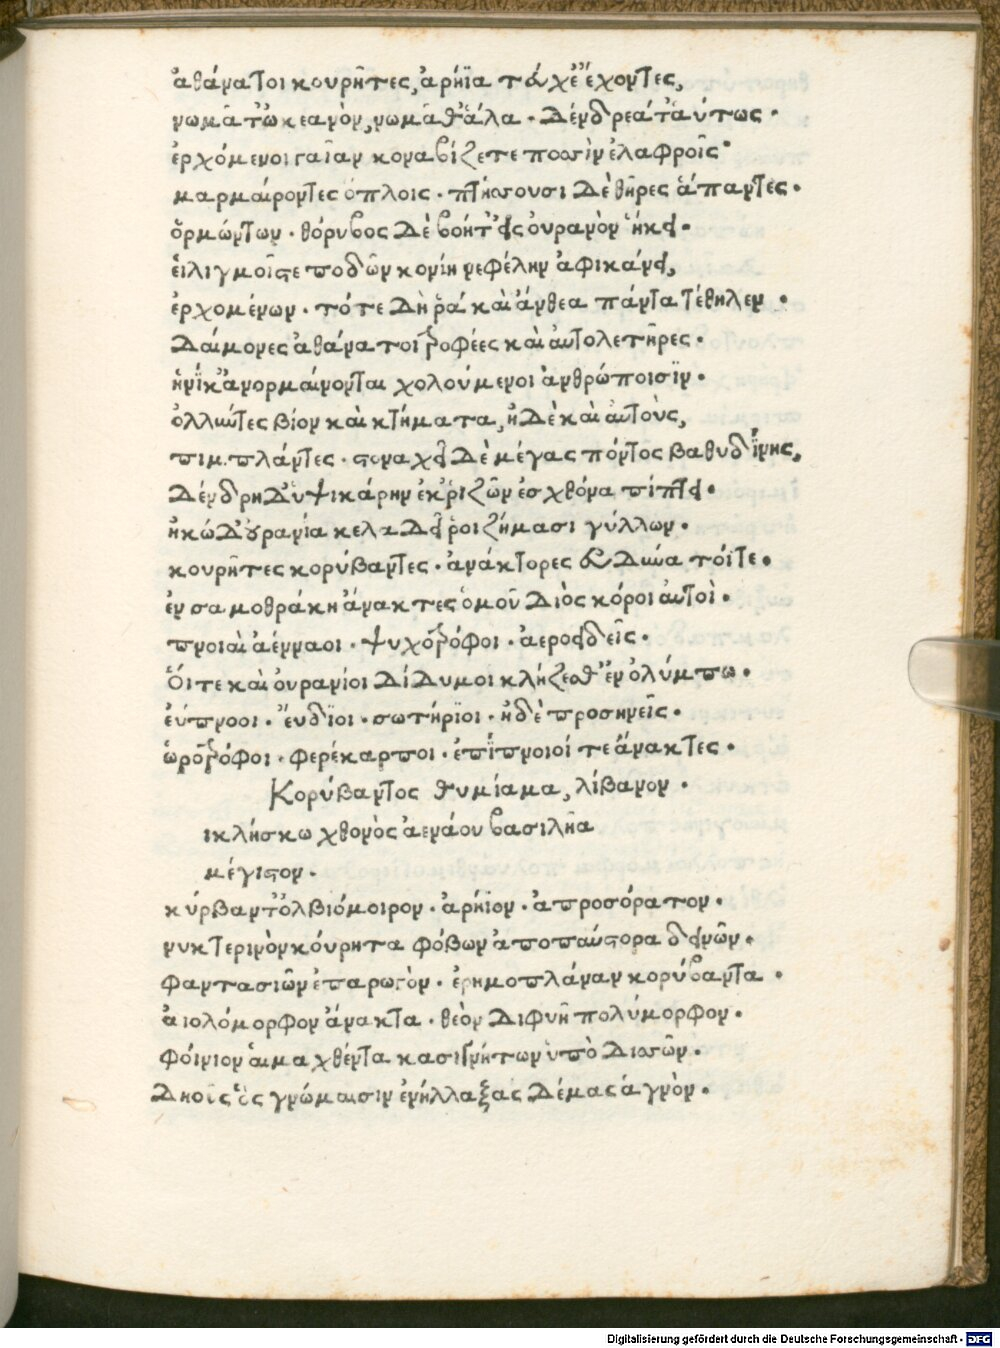 ἀθάνατοι κουρῆτες, ἀρήϊα τεύχε' ἔχοντες,
νωμᾶτ' ὠκεανὸν, νωμᾶθ' ἅλα · δένδρεά θ' αὕτως ·
ἐρχόμενοι γαῖαν κοναβίζετε ποσσὶν ἐλαφροῖς ·
μαρμαίροντες ὅπλοις · πτήσσουσι δὲ θῆρες ἅπαντες ·
ὁρμώντων · θόρυβος δὲ βοήτ' εἰς οὐρανὸν ἥκει ·
εἱλιγμοῖς τε ποδῶν κονίη νεφέλην ἀφικάνει,
ἐρχομένων · τότε δή ῥα καὶ ἄνθεα πάντα τέθηλεν ·
Δαίμονες ἀθάνατοι τροφέες καὶ αὐτολετῆρες ·
ἡνίκ' ἂν ὁρμαίνονται χολούμενοι ἀνθρώποισϊν ·
ὀλλῦντες βίον καὶ κτήματα, ἠδὲ καὶ αὐτοὺς,
πιμπλάντες · στοναχεῖ δὲ μέγας πόντος βαθυδίνης,
Δένδρη δ' ὑψικάρην' ἐκ ῥιζῶν ἐς χθόνα πίπτει ·
ἠχὼ δ' οὐρανία κελαδεῖ ῥοιζήμασι γύλλων ·
κουρῆτες κορύβαντες · ἀνάκτορες εὐδῶα τοί τε ·
ἐν σαμοθράκη ἄνακτες ὁμοῦ Διὸς κόροι αὐτοὶ ·
πνοιαὶ ἀένναοι · ψυχοτρόφοι · ἀεροειδεῖς ·
Οἵ τε καὶ οὐρανίοι Δίδυμοι κλήζεσθ' ἐν ὀλύμπω ·
εὔπνοοι · εὔδϊοι · σωτήρϊοι · ἠδὲ προσηνεῖς ·
ὡροτρόφοι · φερέκαρποι · ἐπίπνοιοί τε ἄνακτες ·
Κορύβαντος θυμίαμα, λίβανον ·
ικλήσκω χθονὸς ἀενάου βασιλῆα
μέγιστον ·
κύρβαντ' ὀλβιόμοιρον · ἀρήϊον · ἀπροσόρατον ·
νυκτερινὸν κούρητα φόβων ἀποπαύστορα δεινῶν ·
φαντασιῶν ἐπαρωγὸν · ἐρημοπλάναν κορύβαντα ·
αἰολόμορφον ἄνακτα · θεὸν Διφυῆ πολύμορφον ·
φοίνιον αἱμαχθέντα κασιγνήτων ὑπὸ Δισσῶν ·
Δηοῦς ὃς γνώμαισιν ἐνήλλαξας Δέμας ἁγνὸν ·
Digitalisierung gefördert durch die Deutsche Forschungsgemeinschaft · DFG